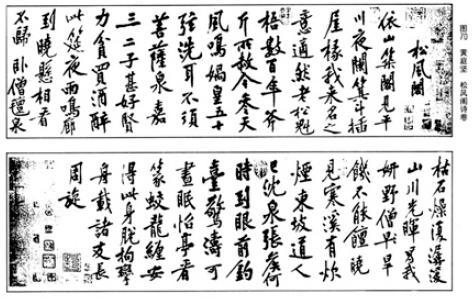 松風閣
依山築閣見平
川夜闌箕斗插
屋椽我來名之
意適然老松魁
梧數百年斧
斤所赦今參天
風鳴媧皇五十
弦洗耳不須
菩薩泉嘉
二三子甚好賢
力貧買酒醉
此筵夜雨鳴廊
到曉懸相看
不歸臥僧氈泉
枯石燥復潺湲
山川光暉為我
妍野僧早旱
飢不能饘曉
見寒溪有炊
煙東坡道人
已沈泉張侯何
時到眼前釣
臺驚濤可
晝眠怡亭看
篆蛟龍纏安
得此身脫拘攣
舟載諸友長
周旋
图70 黄庭坚 松风阁诗卷